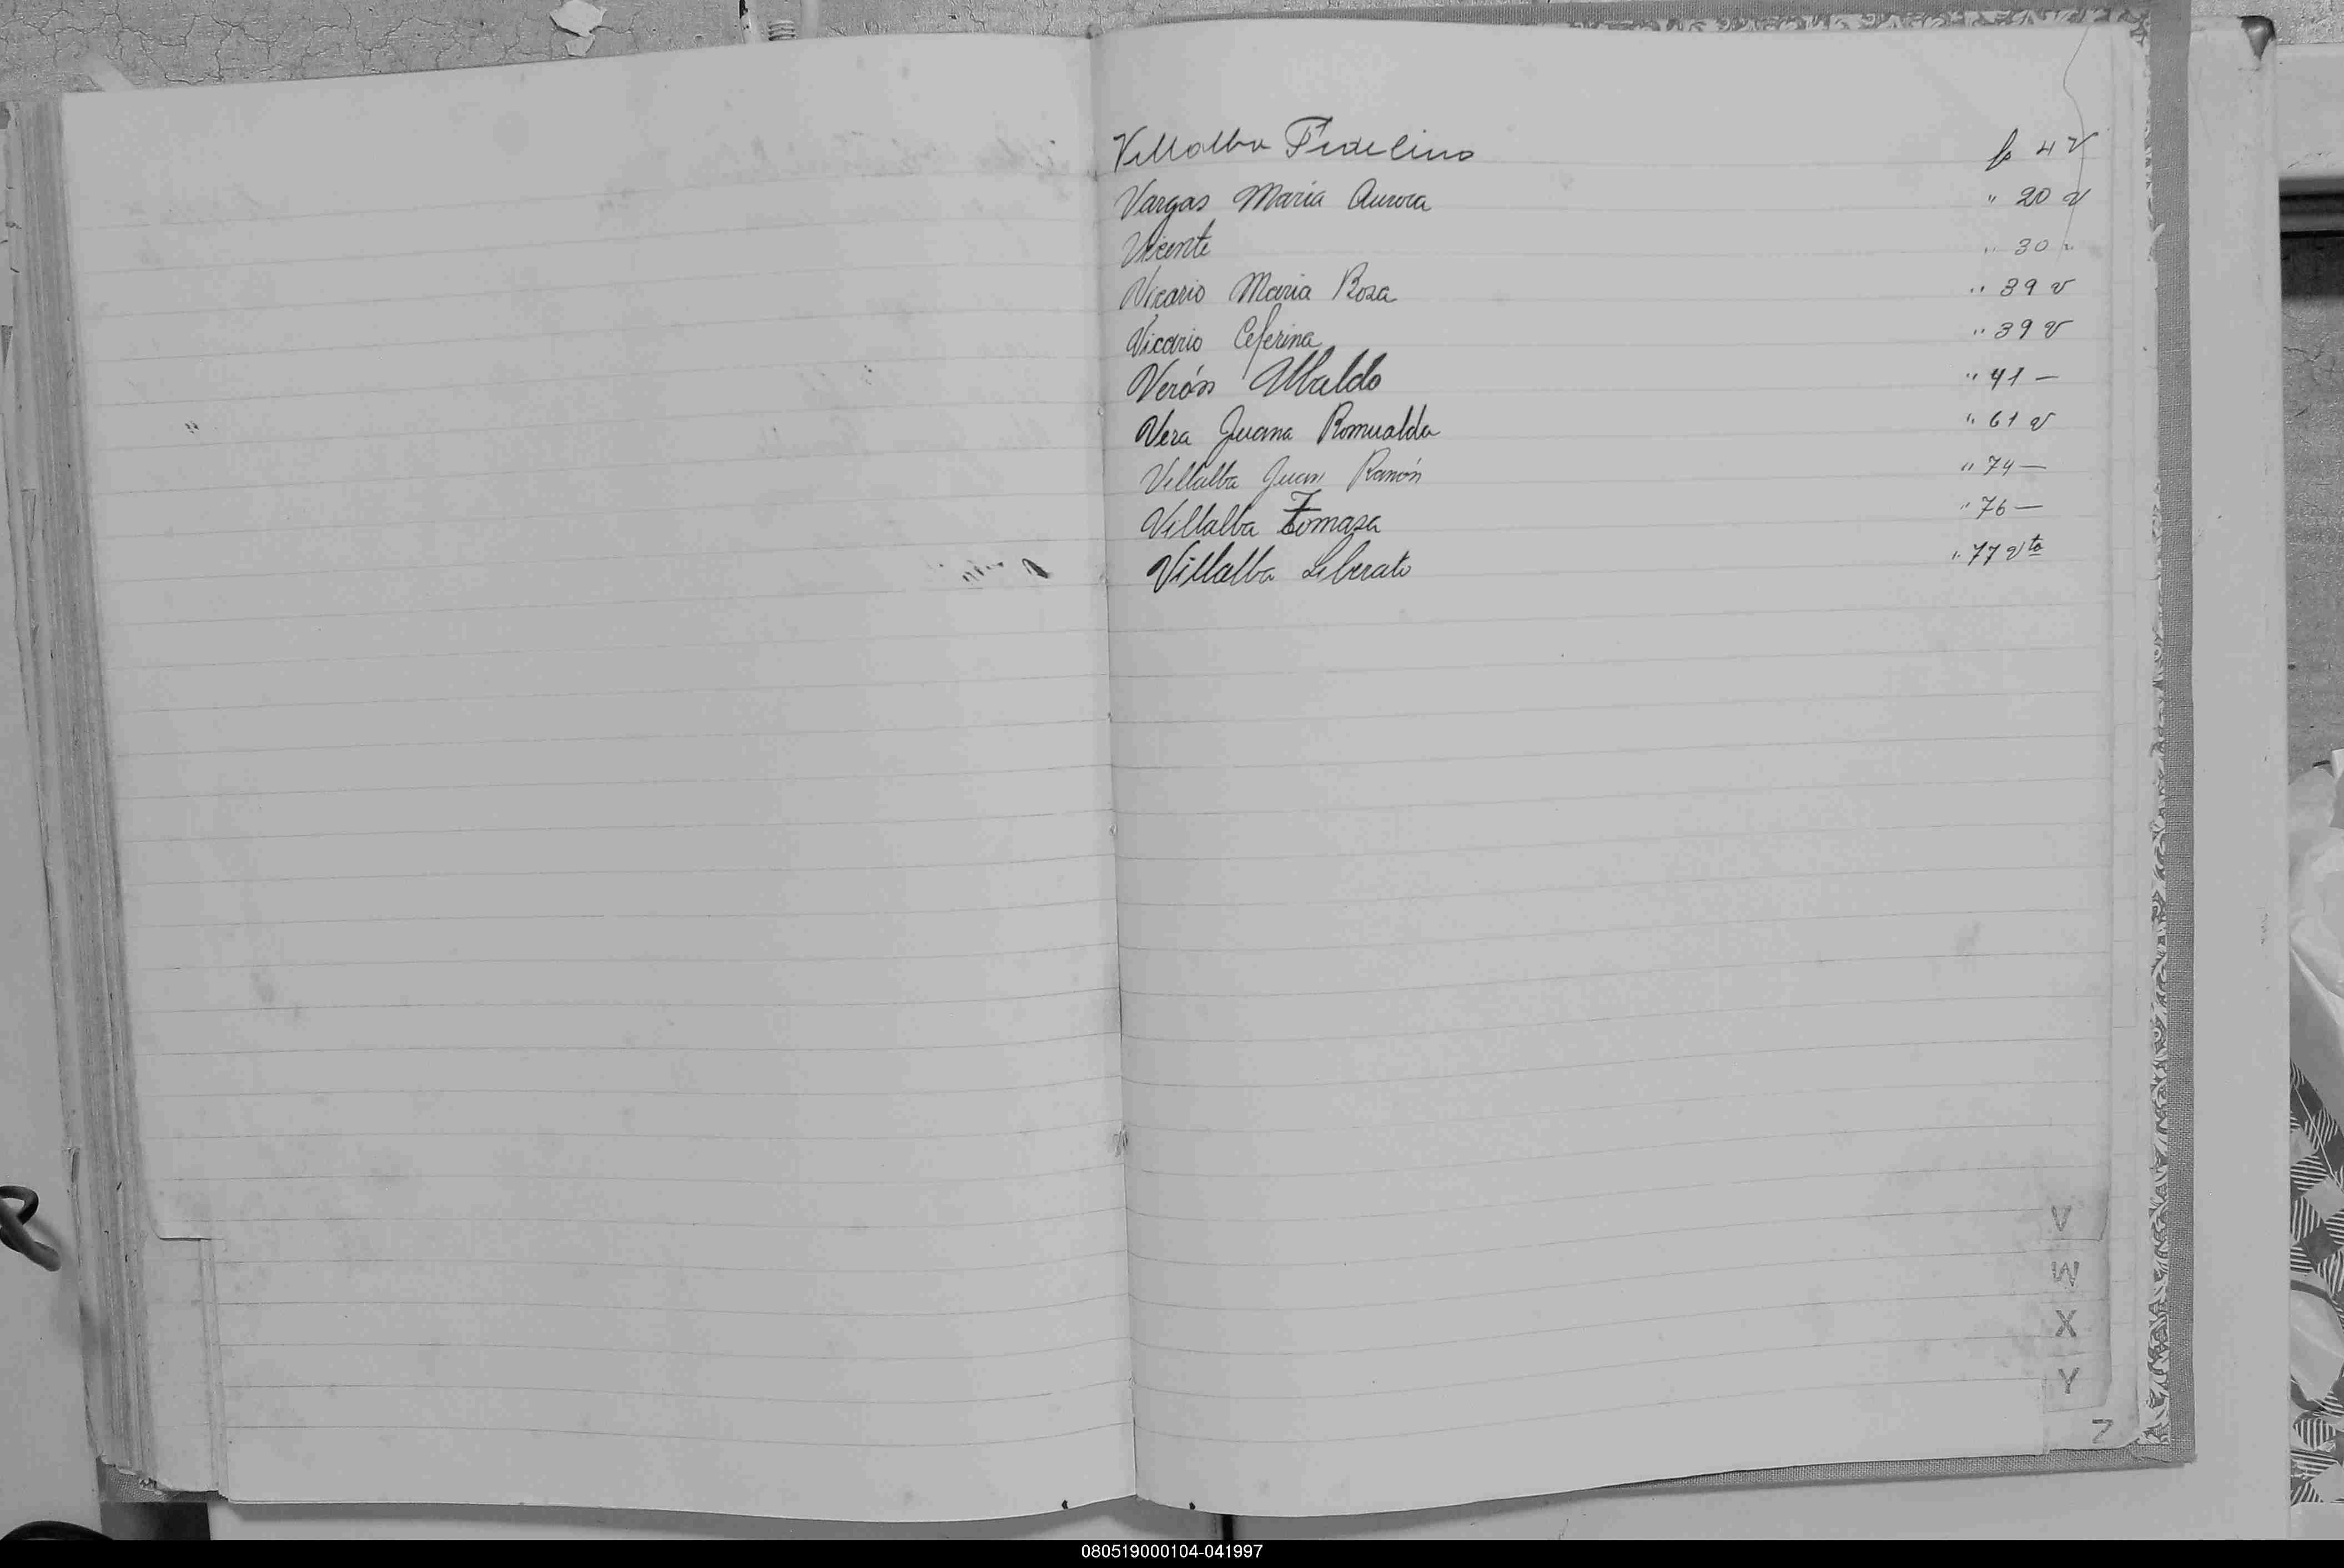 Villalba Fidelino fo 4 v
Vargas María Aurora " 20 v
Vicente " 30 "
Vicario María Rosa " 39 v
Vicario Ceferina " 39 v
Verón Ubaldo " 41 —
Vera Juana Romualda " 61 v
Villalba Juan Ramón " 74 —
Villalba Tomasa " 76 —
Villalba Liberato " 77 vto
V
W
X
Y
Z
080519000104-041997